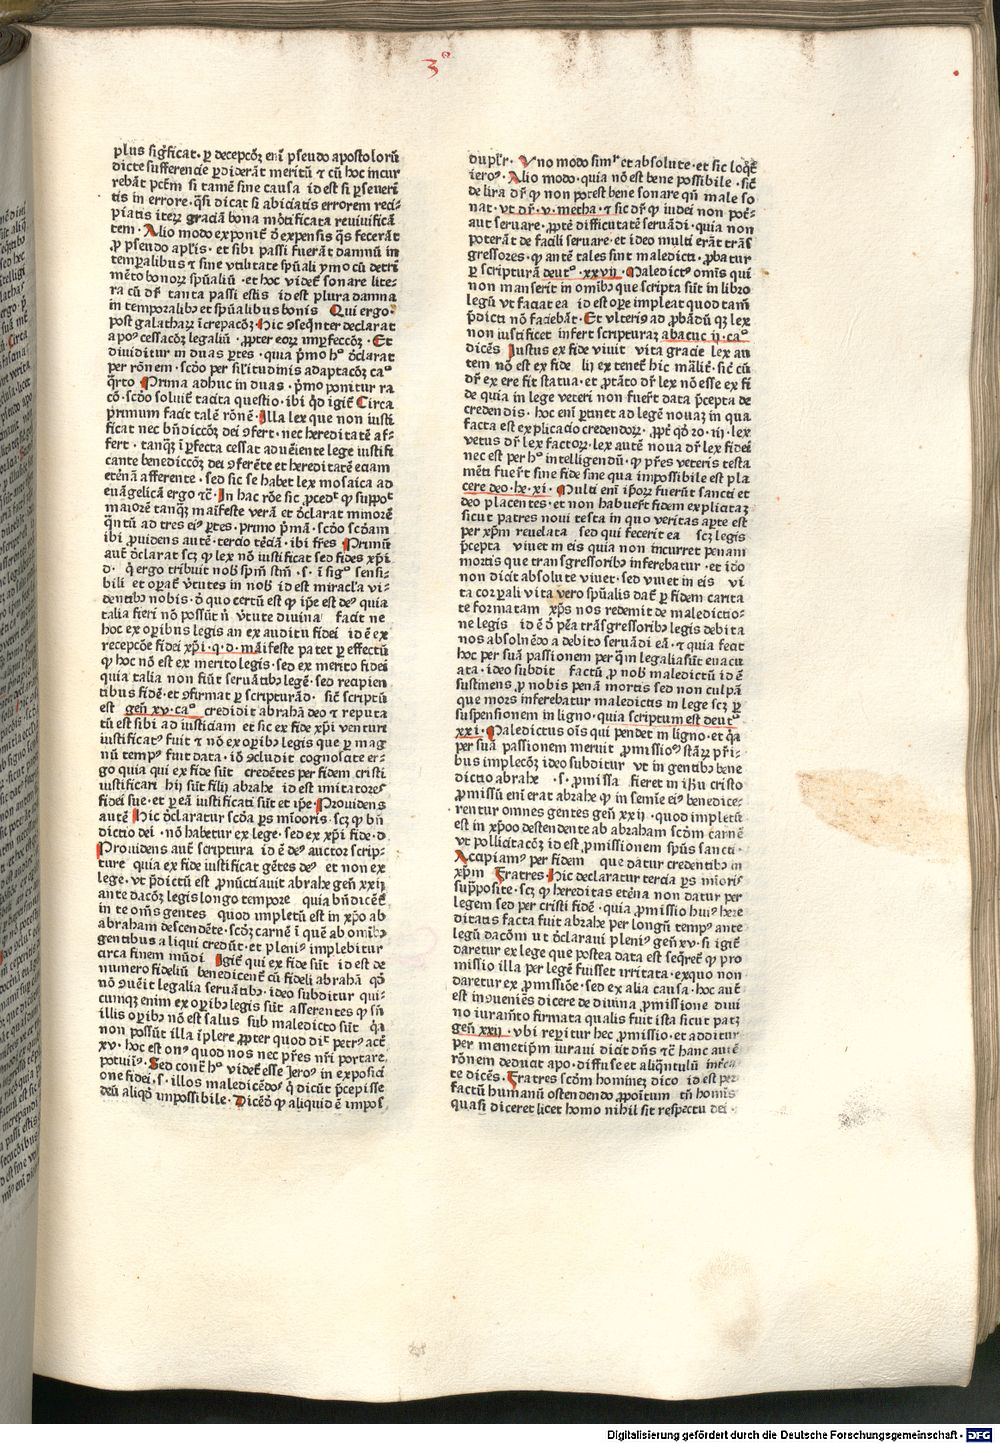 3º
plus sigͥficat· ꝑ decepcōꝫ enī pseudo apostoloꝝ
dicte sufferencie ꝑdiderāt meritū ⁊ cū hoc incur
rebāt pctm̄ si tamē sine causa id est si ꝑseueri
tis in errore· q̄si dicat si abiciatis errorem reci-
piatis iteꝝ graciā bona mōtificata reuiuificā
tem· Alio modo exponit̄ ō expensis q̄s fecerāt
ꝓ pseudo apl̄is· et sibi passi fuerāt damnū in
temꝑalibus ⁊ sine vtilitate spūali ymo cū detri
mēto bonoꝝ spūaliū· et hoc videt̄ sonare lite-
ra cū dr̄ tanta passi estis id est plura damna
in temporalibꝫ et spūalibus bonis Qui ergo·
post galathaꝝ īcrepacōꝫ· Hic ꝯseq̄nter declarat
apoꝰ cessacōꝫ legaliū· ꝓpter eoꝝ imꝑfeccōꝫ· Et
diuiditur in duas ꝑtes· quia pͥmo hº d̄clarat
per rōnem· scd̄o per sil̄itudinis adaptacōꝫ caº
q̄rto Prima adhuc in duas· pͥmo ponitur ra
cō· scd̄o soluit̄ tacita questio· ibi qd̄ igit̄ Circa
primum facit talē rōnē· Illa lex que non iusti
ficat nec bn̄diccōꝫ dei ꝯfert· nec hereditatē af-
fert· tanqꝫ īꝑfecta cessat adueniente lege iustifi
cante benediccōꝫ dei ꝯferēte et hereditatē eciam
etn̄ā afferente· sed sic se habet lex mosaica ad
euāgelicā ergo ⁊c̄· In hac rōe sic ꝓcedt̄ ꝙ suppōt
maiorē tanqꝫ maīfeste verā et d̄clarat minorē
q̄ntū ad tres eiꝰ ꝑtes· primo pͥmā· scd̄o scd̄am
ibi ꝓuidens autē· tercio tēciā· ibi fr̄es Primū
aut̄ d̄clarat scꝫ ꝙ lex nō iustificat sed fides xp̄i
d· q̄ ergo tribuit nob̄ spm̄ stm̄·s· ī sigº sensi-
bili et oꝑat̄ v̄tutes in nob̄ id est miracl̄a vi-
dentibꝫ nobis· ō quo certū est ꝙ ip̄e est deꝰ quia
talia fieri nō possūt n̄ v̄tute diuina facit ne
hoc ex oꝑibus legis an ex auditu fidei id ē ex
recepcōe fidei xp̄i·q·d·māifeste patet ꝑ effectū
ꝙ hoc nō est ex merito legis· sed ex merito fidei
quia talia non fiūt seruātibꝫ legē· sed recipien
tibus fidē· et ꝯfirmat ꝑ scripturā d· sic̄ scriptū
est gen̄ xv·caº credidit abrahā deo ⁊ reputa
tū est sibi ad iusticiam et sic ex fide xp̄i venturi
iustificatꝰ fuit ⁊ nō ex oꝑibꝫ legis que ꝑ mag
nū tempꝰ fuit data· iō ꝯcludit cognoscite er-
go quia qui ex fide sūt credētes per fidem cristi
iustificari hij sūt filij abrahe id est imitatores
fidei sue· et ꝑ eā iustificati sūt et ip̄e· Prouidens
autē Hic d̄claratur scd̄a ꝑs mīoris· scꝫ ꝙ bn̄
dictio dei· nō habetur ex lege· sed ex xp̄i fide·d·
Prouidens aut̄ scriptura id ē deꝰ auctor scrip-
ture quia ex fide iustificat gētes deꝰ et non ex
lege· vt p̄dictū est ꝓnūciauit abrahe gen̄ xxij
ante dacōꝫ legis longo tempore quia bn̄dicēt̄
in te om̄s gentes quod impletū est in xp̄o ab
abraham descendēte· scd̄ꝫ carnē ī quē ab om̄ibꝫ
gentibus aliqui credūt· et pleniꝰ implebitur
circa finem mūdi Igit̄ qui ex fide sūt id est de
numero fideliū benedicent̄ cū fideli abrahā qd̄
nō ꝯuēit legalia seruātibꝫ· ideo subditur qui-
cumqꝫ enim ex oꝑibꝫ legis sūt asserentes ꝙ sn̄
illis oꝑibꝫ nō est salus sub maledicto sūt q̄a
non possūt illa īplere ꝓpter quod dīt petrꝰ act̄
xv· hoc est onꝰ quod nos nec pr̄es nr̄i portare
potuīꝰ· Sed cont̄ hº videt̄ esse Jeroꝰ in exposici
one fidei·s· illos maledicēdoꝰ q̄ dicūt p̄cepisse
deū aliqd̄ impossibile· Dicēd̄ ꝙ aliquid ē impos
duplr̄· Vno modo simͬ et absolute· et sic loqt̄
ieroꝰ· Alio modo· quia nō est bene possibile· sic̄
de lira dr̄ ꝙ non potest bene sonare qn̄ male so
nat· vt dr̄·v·metha·⁊ sic dr̄ ꝙ iudei non pot̄-
aut seruare· ꝓpt̄ difficultatē seruādi· quia non
poterāt de facili seruare· et ideo multi erāt trās
gressores· ꝙ antē tales sint maledicti· ꝓbatur
ꝑ scripturā deutº·xxvij· Maledictꝰ om̄is qui
non manserit in om̄ibꝫ que scripta sūt in libro
legū vt faciat ea id est oꝑe impleat quod tam̄
p̄dicti nō faciebāt· Et vlteriꝰ ad ꝓbādū qꝫ lex
non iustificet infert scripturaꝫ abacuc ij·caº
dicēs Justus ex fide viuit vita gracie lex au
tem nō est ex fide
de quia in lege veteri non fuer̄t data p̄cepta de
credendis· hoc enī ꝑtinet ad legē nouaꝫ in qua
facta est explicacio credendoꝝ· ꝓpt̄ qd̄ ro·iij·lex
vetus dr̄ lex factoꝝ· lex autē noua dr̄ lex fidei
nec est per hº intelligendū· ꝙ pr̄es veteris testa
mēti fuer̄t sine fide sine qua impossibile est pla
cere deo·he·xi· Multi enī ip̄oꝝ fuerūt sancti et
deo placentes· et non habuer̄t fidem explicitaꝫ
sicut patres noui testa in quo veritas aꝑte est
per xp̄m reuelata sed qui fecerit ea scꝫ legis
p̄cepta viuet in eis quia non incurret penam
mortis que transgressoribꝫ inferebatur· et ido
non dicit absolute viuet· sed viuet in eis vi
ta corꝑali vita vero spūalis dat̄ ꝑ fidem carita
te formatam xp̄s nos redemit de maledictio-
ne legis id ē ō pēa trāsgressoribꝫ legis debita
nos absoluēdo a debito seruādi eā· ⁊ quia fecit
hoc per suā passionem per qͣm legalia sūt euacu
ata· ideo subdit factꝰ ꝓ nob̄ maledictū id ē
sustinens ꝓ nobis penā mortis sed non culpā
que mors inferebatur maledictis in lege scꝫ ꝑ
suspensionem in ligno· quia scriptum est deutº
xxi· Maledictus oīs qui pendet in ligno· et q̄a
per suā passionem meruit ꝓmissioꝰ
bus implecōꝫ ideo subditur vt in gentibꝫ bene
dictio abrahe·s·ꝓmissa fieret in ih̄u cristo
ꝓmissū enī erat abrahe ꝙ in semīe eiꝰ benedice-
rentur omnes gentes gen̄ xxij· quod impletū
est in xp̄o destendente ab abraham scd̄m carnē
vt pollicitacōꝫ id est ꝓmissionem spūs sancti·
Accipiamꝰ per fidem que datur credentibꝫ in
xp̄m Fratres· Hic declaratur tercia ꝑs mioriꝰ
suꝑposite· scꝫ ꝙ hereditas etn̄a non datur per
legem sed per cristi fidē· quia ꝓmissio huiꝰ here
ditatis facta fuit abrahe per longū tempꝰ ante
legū dacōm ut d̄claraui pleniꝰ gen̄ xv· si igit̄
daretur ex lege que postea data est seq̄ret̄ ꝙ pro
missio illa per legē fuisset irritata· ex quo non
daretur ex ꝓmissiōe· sed ex alia causa· hoc aut̄
est inꝯueniēs dicere de diuina ꝓmissione diui
no iuram̄to firmata qualis fuit ista sicut patꝫ
gen̄ xxij·vbi reꝑitur hec ꝓmissio· et additur
per memetip̄m iuraui dicit dn̄s ⁊c̄ hanc autē
rōnem deducit apo· diffuse et aliq̄ntulū intͥca
te dicēs· Fratres scd̄m hominez dico id est per
factū humanū ostendendo ꝓpoītum tn̄ homīs
quasi diceret licet homo nihil sit respectu dei·
Digitalisierung gefördert durch die Deutsche Forschungsgemeinschaft - DFG